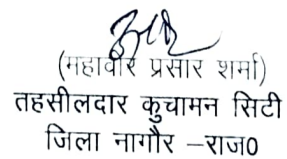 (महावीर प्रसार शर्मा)
तहसीलदार कुचामन सिटी
जिला नागौर –राज0